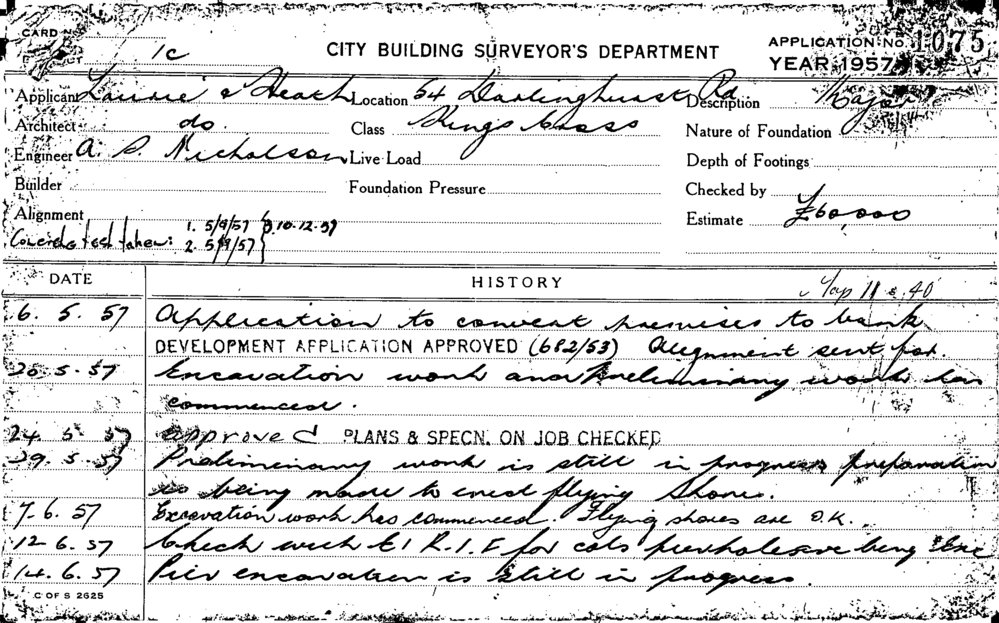 CARD No
1c
CITY BUILDING SURVEYOR'S DEPARTMENT
APPLICATION No. 1075
YEAR 1957
Applicant Laurie & Heath Location 64 Darlinghurst Rd Description Major
Architect do. Class Kings Cross Nature of Foundation
Engineer A. S. Nicholson Live Load Depth of Footings
Builder Foundation Pressure Checked by
Alignment Estimate £60000
Concrete test taken: 1. 5/9/57 3. 10.12.57
2. 5/9/57
DATE HISTORY
Map 11 & 40
6. 5. 57 Application to convert premises to bank
DEVELOPMENT APPLICATION APPROVED (682/53) Alignment sent for.
20. 5. 57 Excavation work and preliminary work has
commenced.
24 5 57 approved PLANS & SPECN. ON JOB CHECKED
29. 5. 57 Preliminary work is still in progress preparation
is being made to erect flying shores.
7. 6. 57 Excavation work has commenced. Flying shores are O.K.
12 6. 57 Check with for cols being
14. 6. 57 Pier excavation is still in progress.
C OF S 2625